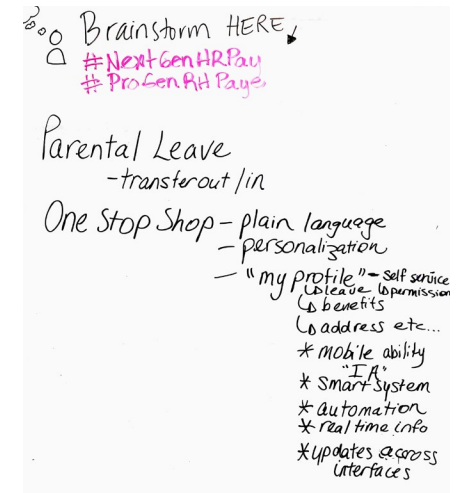 Brainstorm HERE
#NextGenHRPay
#ProGenRHPaye
Parental Leave
-transfer out/in
One Stop Shop - plain language
- personalization
- "my profile" - self service
↳ leave ↳ permission
↳ benefits
↳ address etc...
* mobile ability
"IA"
* smart system
* automation
* real time info
* updates across
interfaces